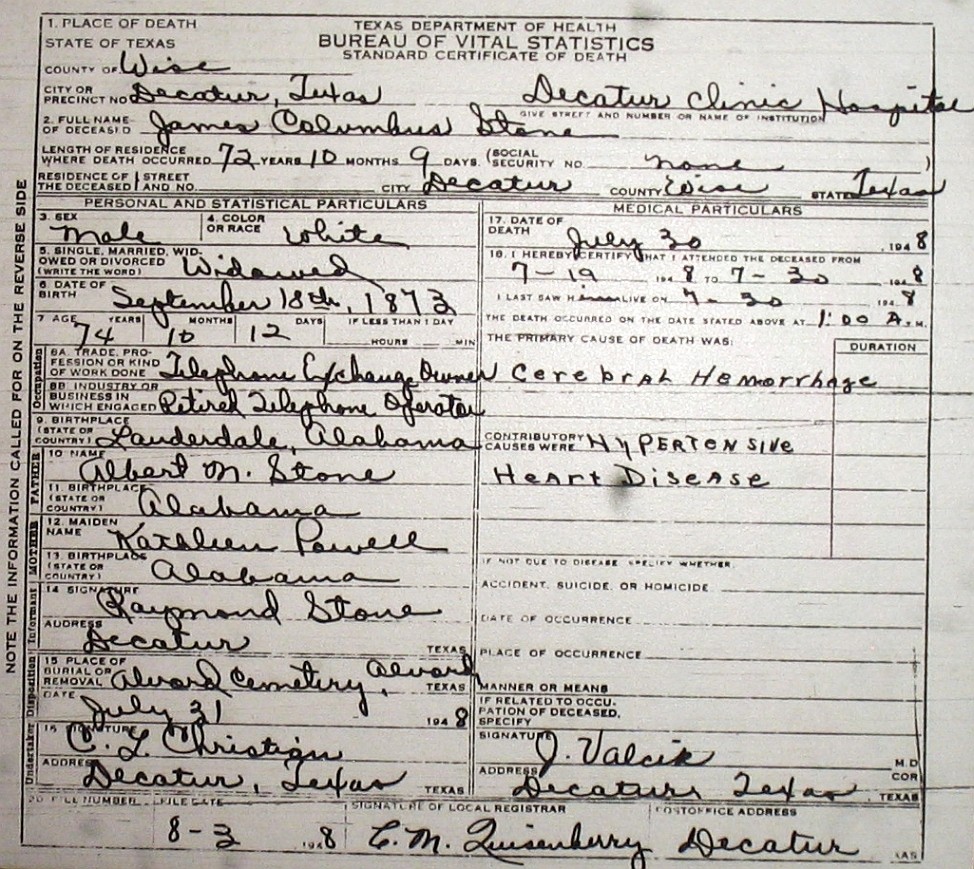 1. PLACE OF DEATH
STATE OF TEXAS
TEXAS DEPARTMENT OF HEALTH
BUREAU OF VITAL STATISTICS
STANDARD CERTIFICATE OF DEATH
COUNTY OF Wise
CITY OR PRECINCT NO. Decatur, Texas Decatur Clinic Hospital
GIVE STREET AND NUMBER OR NAME OF INSTITUTION
2. FULL NAME OF DECEASED James Columbus Stone
LENGTH OF RESIDENCE WHERE DEATH OCCURRED 72 YEARS 10 MONTHS 9 DAYS. (SOCIAL SECURITY NO. none )
RESIDENCE OF THE DECEASED STREET AND NO. CITY Decatur COUNTY Wise STATE Texas
NOTE THE INFORMATION CALLED FOR ON THE REVERSE SIDE
PERSONAL AND STATISTICAL PARTICULARS
3. SEX Male
4. COLOR OR RACE White
5. SINGLE, MARRIED, WIDOWED OR DIVORCED (WRITE THE WORD) Widowed
6 DATE OF BIRTH September 18th, 1873
7 AGE 74 YEARS 10 MONTHS 12 DAYS IF LESS THAN 1 DAY
HOURS MIN
Occupation
8A. TRADE, PROFESSION OR KIND OF WORK DONE Telephone Exchange Owner
8B INDUSTRY OR BUSINESS IN WHICH ENGAGED Retired Telephone Operator
9. BIRTHPLACE (STATE OR COUNTRY) Lauderdale, Alabama
FATHER
10 NAME Albert M. Stone
11. BIRTHPLACE (STATE OR COUNTRY) Alabama
MOTHER
12. MAIDEN NAME Kathleen Powell
13. BIRTHPLACE (STATE OR COUNTRY) Alabama
Informant
14 SIGNATURE Raymond Stone
ADDRESS Decatur TEXAS
Disposition
15 PLACE OF BURIAL OR REMOVAL Alvord Cemetery, Alvord TEXAS
DATE July 31 1948
Undertaker
16 SIGNATURE C. L. Christian
ADDRESS Decatur, Texas TEXAS
MEDICAL PARTICULARS
17. DATE OF DEATH July 30, 1948
18. I HEREBY CERTIFY THAT I ATTENDED THE DECEASED FROM
7-19 1948 TO 7-30 1948
I LAST SAW H ALIVE ON 7-30 1948
THE DEATH OCCURRED ON THE DATE STATED ABOVE AT 1:00 A. M.
THE PRIMARY CAUSE OF DEATH WAS: DURATION
Cerebral Hemorrhage
CONTRIBUTORY CAUSES WERE Hypertensive
Heart Disease
IF NOT DUE TO DISEASE SPECIFY WHETHER:
ACCIDENT, SUICIDE, OR HOMICIDE
DATE OF OCCURRENCE
PLACE OF OCCURRENCE
MANNER OR MEANS
IF RELATED TO OCCUPATION OF DECEASED, SPECIFY
SIGNATURE J. Valcik M.D
COR
ADDRESS Decatur Texas, TEXAS
20 FILE NUMBER FILE DATE SIGNATURE OF LOCAL REGISTRAR POSTOFFICE ADDRESS
8-3 1948 C. M. Quisenberry Decatur